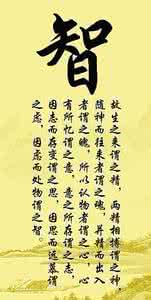 智
故生之来谓之精，两精相搏谓之神，
随神而往来者谓之魂，并精而出入
者谓之魄，所以任物者谓之心，心
有所忆谓之意，意之所存谓之志，
因志而存变谓之思，因思而远慕谓
之虑，因虑而处物谓之智。